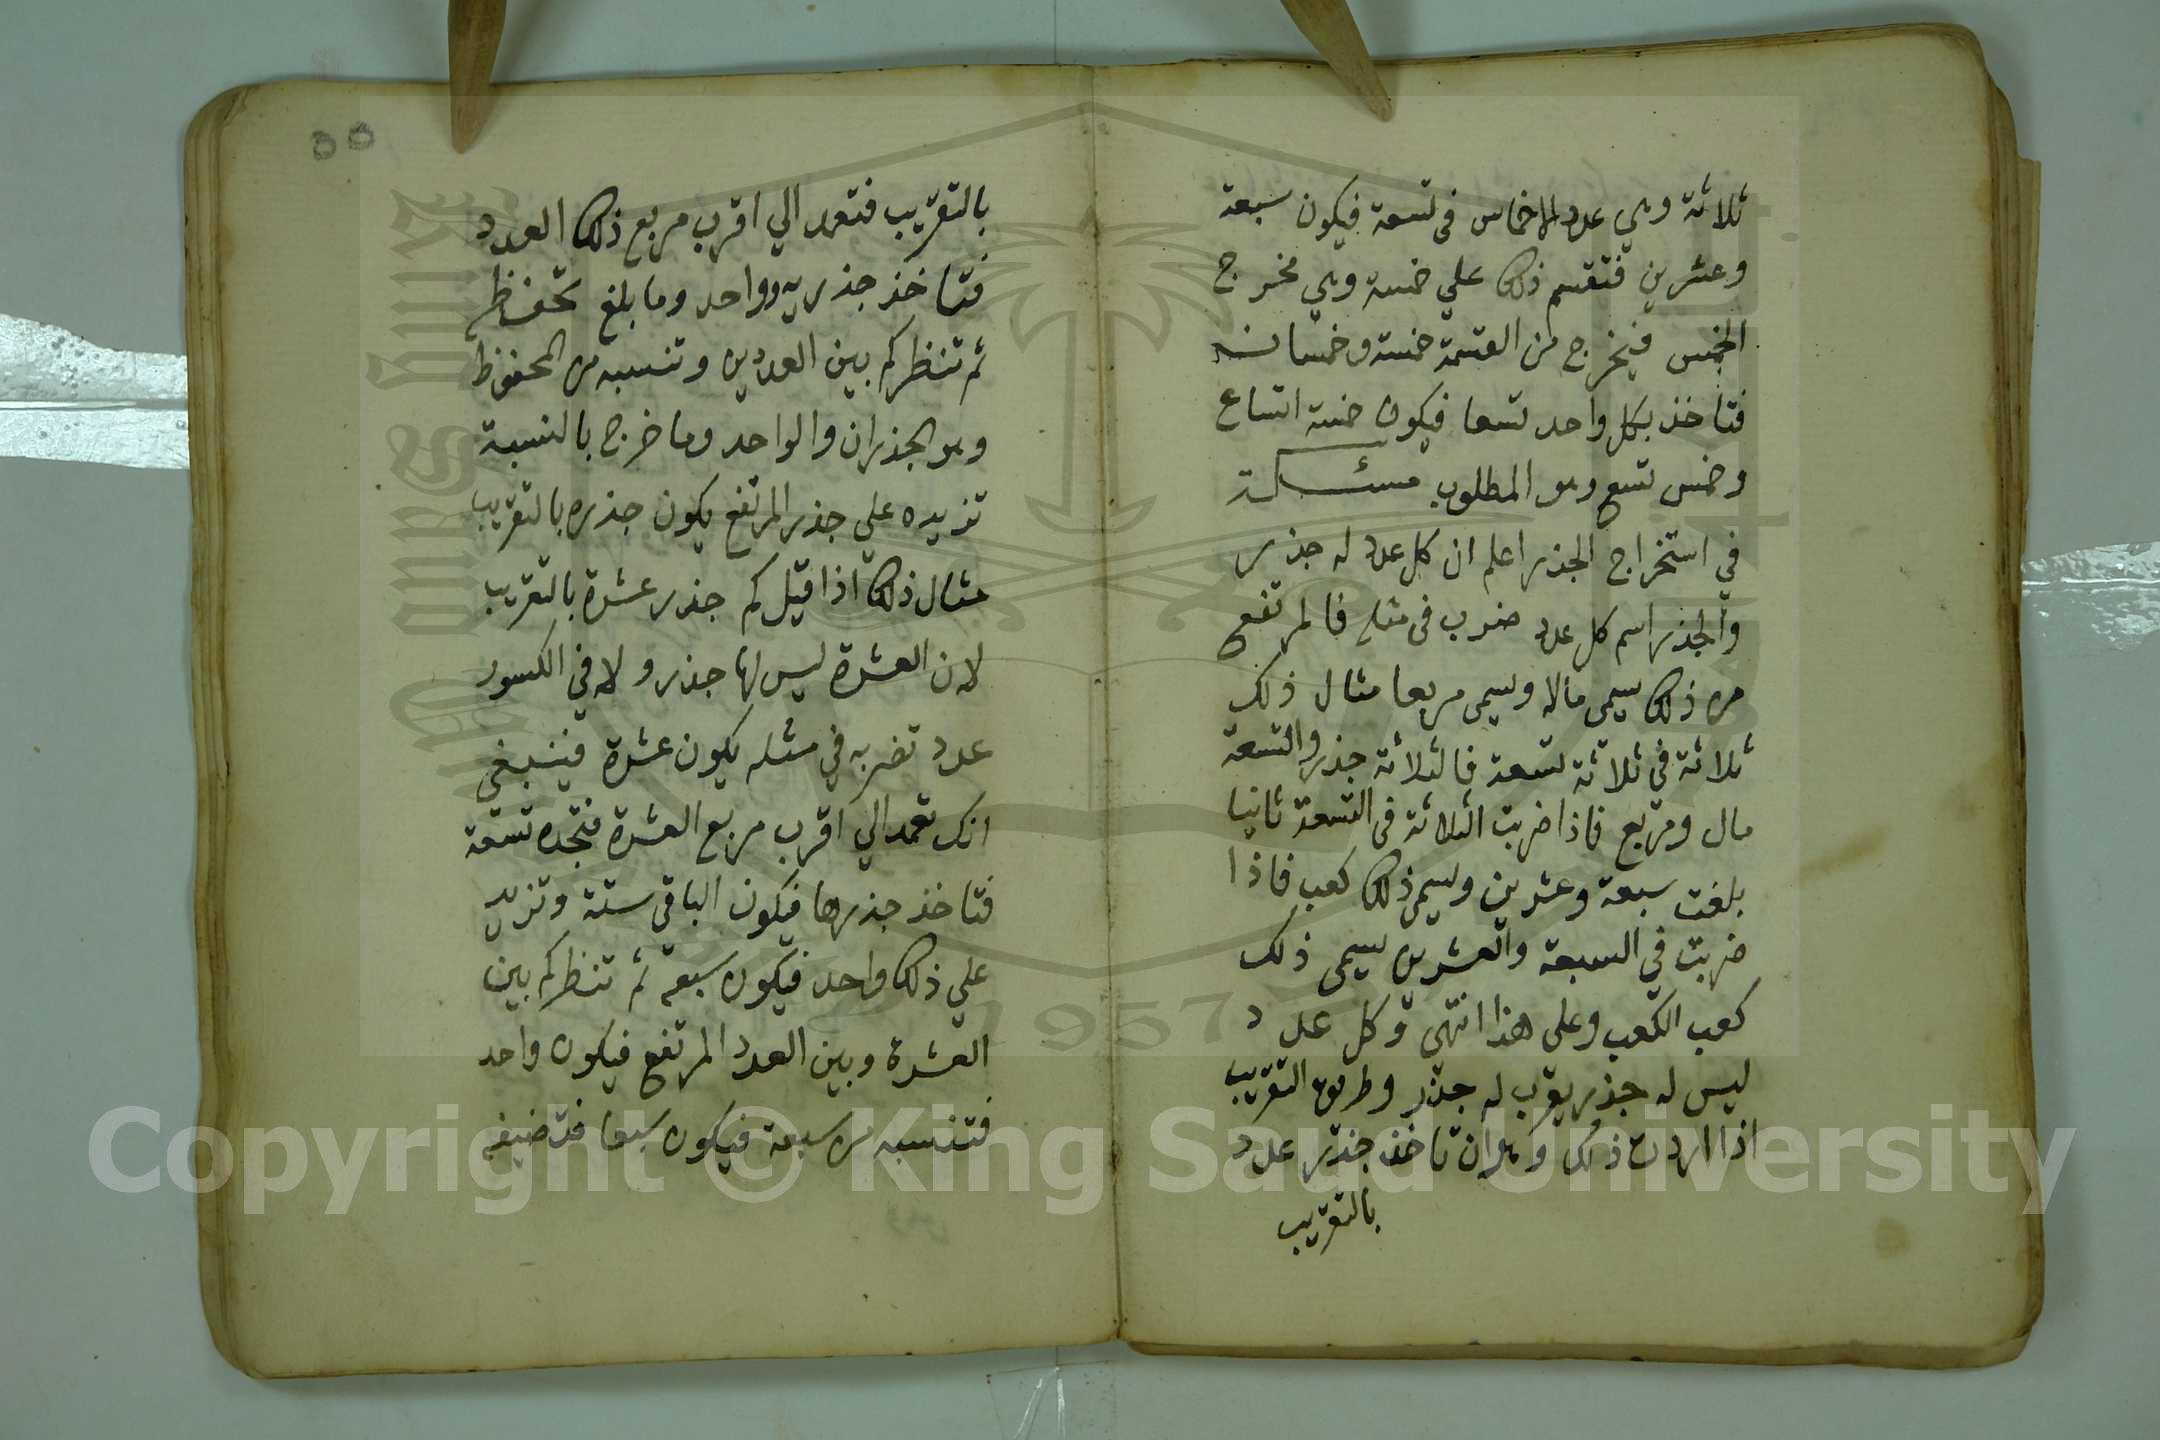 ثلاثة وهي عدد الاخماس في تسعة فيكون سبعة
وعشرين فتقسم ذلك علي خمسة وهي مخرج
الخمس فيخرج من القسمة خمسة وخمسان
فتاخذ بكل واحد تسعا فيكون خمسة اتساع
وخمس تسع وهو المطلوب مسئلة
في استخراج الجذر اعلم ان كل عدد له جذر
والجذر اسم كل عدد ضرب في مثله فالمرتفع
من ذلك يسمى مالا ويسمى مربعا مثال ذلك
ثلاثة في ثلاثة تسعة فالثلاثة جذر والتسعة
مال ومربع فاذا ضربت الثلاثة في التسعة ثانيا
بلغت سبعة وعشرين ويسمى ذلك كعب فاذا
ضربت في السبعة والعشرين يسمى ذلك
كعب الكعب وعلى هذا انتهى وكل عدد
ليس له جذر يقرب له جذر وطريق التقريب
اذا اردت ذلك وهو ان تاخذ جذر عدد
بالتقريب
٥٥
بالتقريب فتعمد الي اقرب مربع ذلك العدد
فتاخذ جذريه وواحد وما بلغ تحفظ
ثم تنظر كم بين العددين وتنسبه من المحفوظ
وهو الجذران والواحد وما خرج بالنسبة
تزيده علي جذر المرتفع يكون جذره بالتقريب
مثال ذلك اذا قيل كم جذر عشرة بالتقريب
لان العشرة ليس لها جذر ولا في الكسور
عدد تضربه في مثله يكون عشرة فينبغي
انك تعمد الي اقرب مربع العشرة فتجده تسعة
فتاخذ جذرها فيكون الباقي ستة وتزيد
علي ذلك واحد فيكون سبعة ثم تنظر كم بين
العشرة وبين العدد المرتفع فيكون واحد
فتنسبه من سبعة فيكون سبعا فتضيفه
King Saud University
1957
Copyright © King Saud University